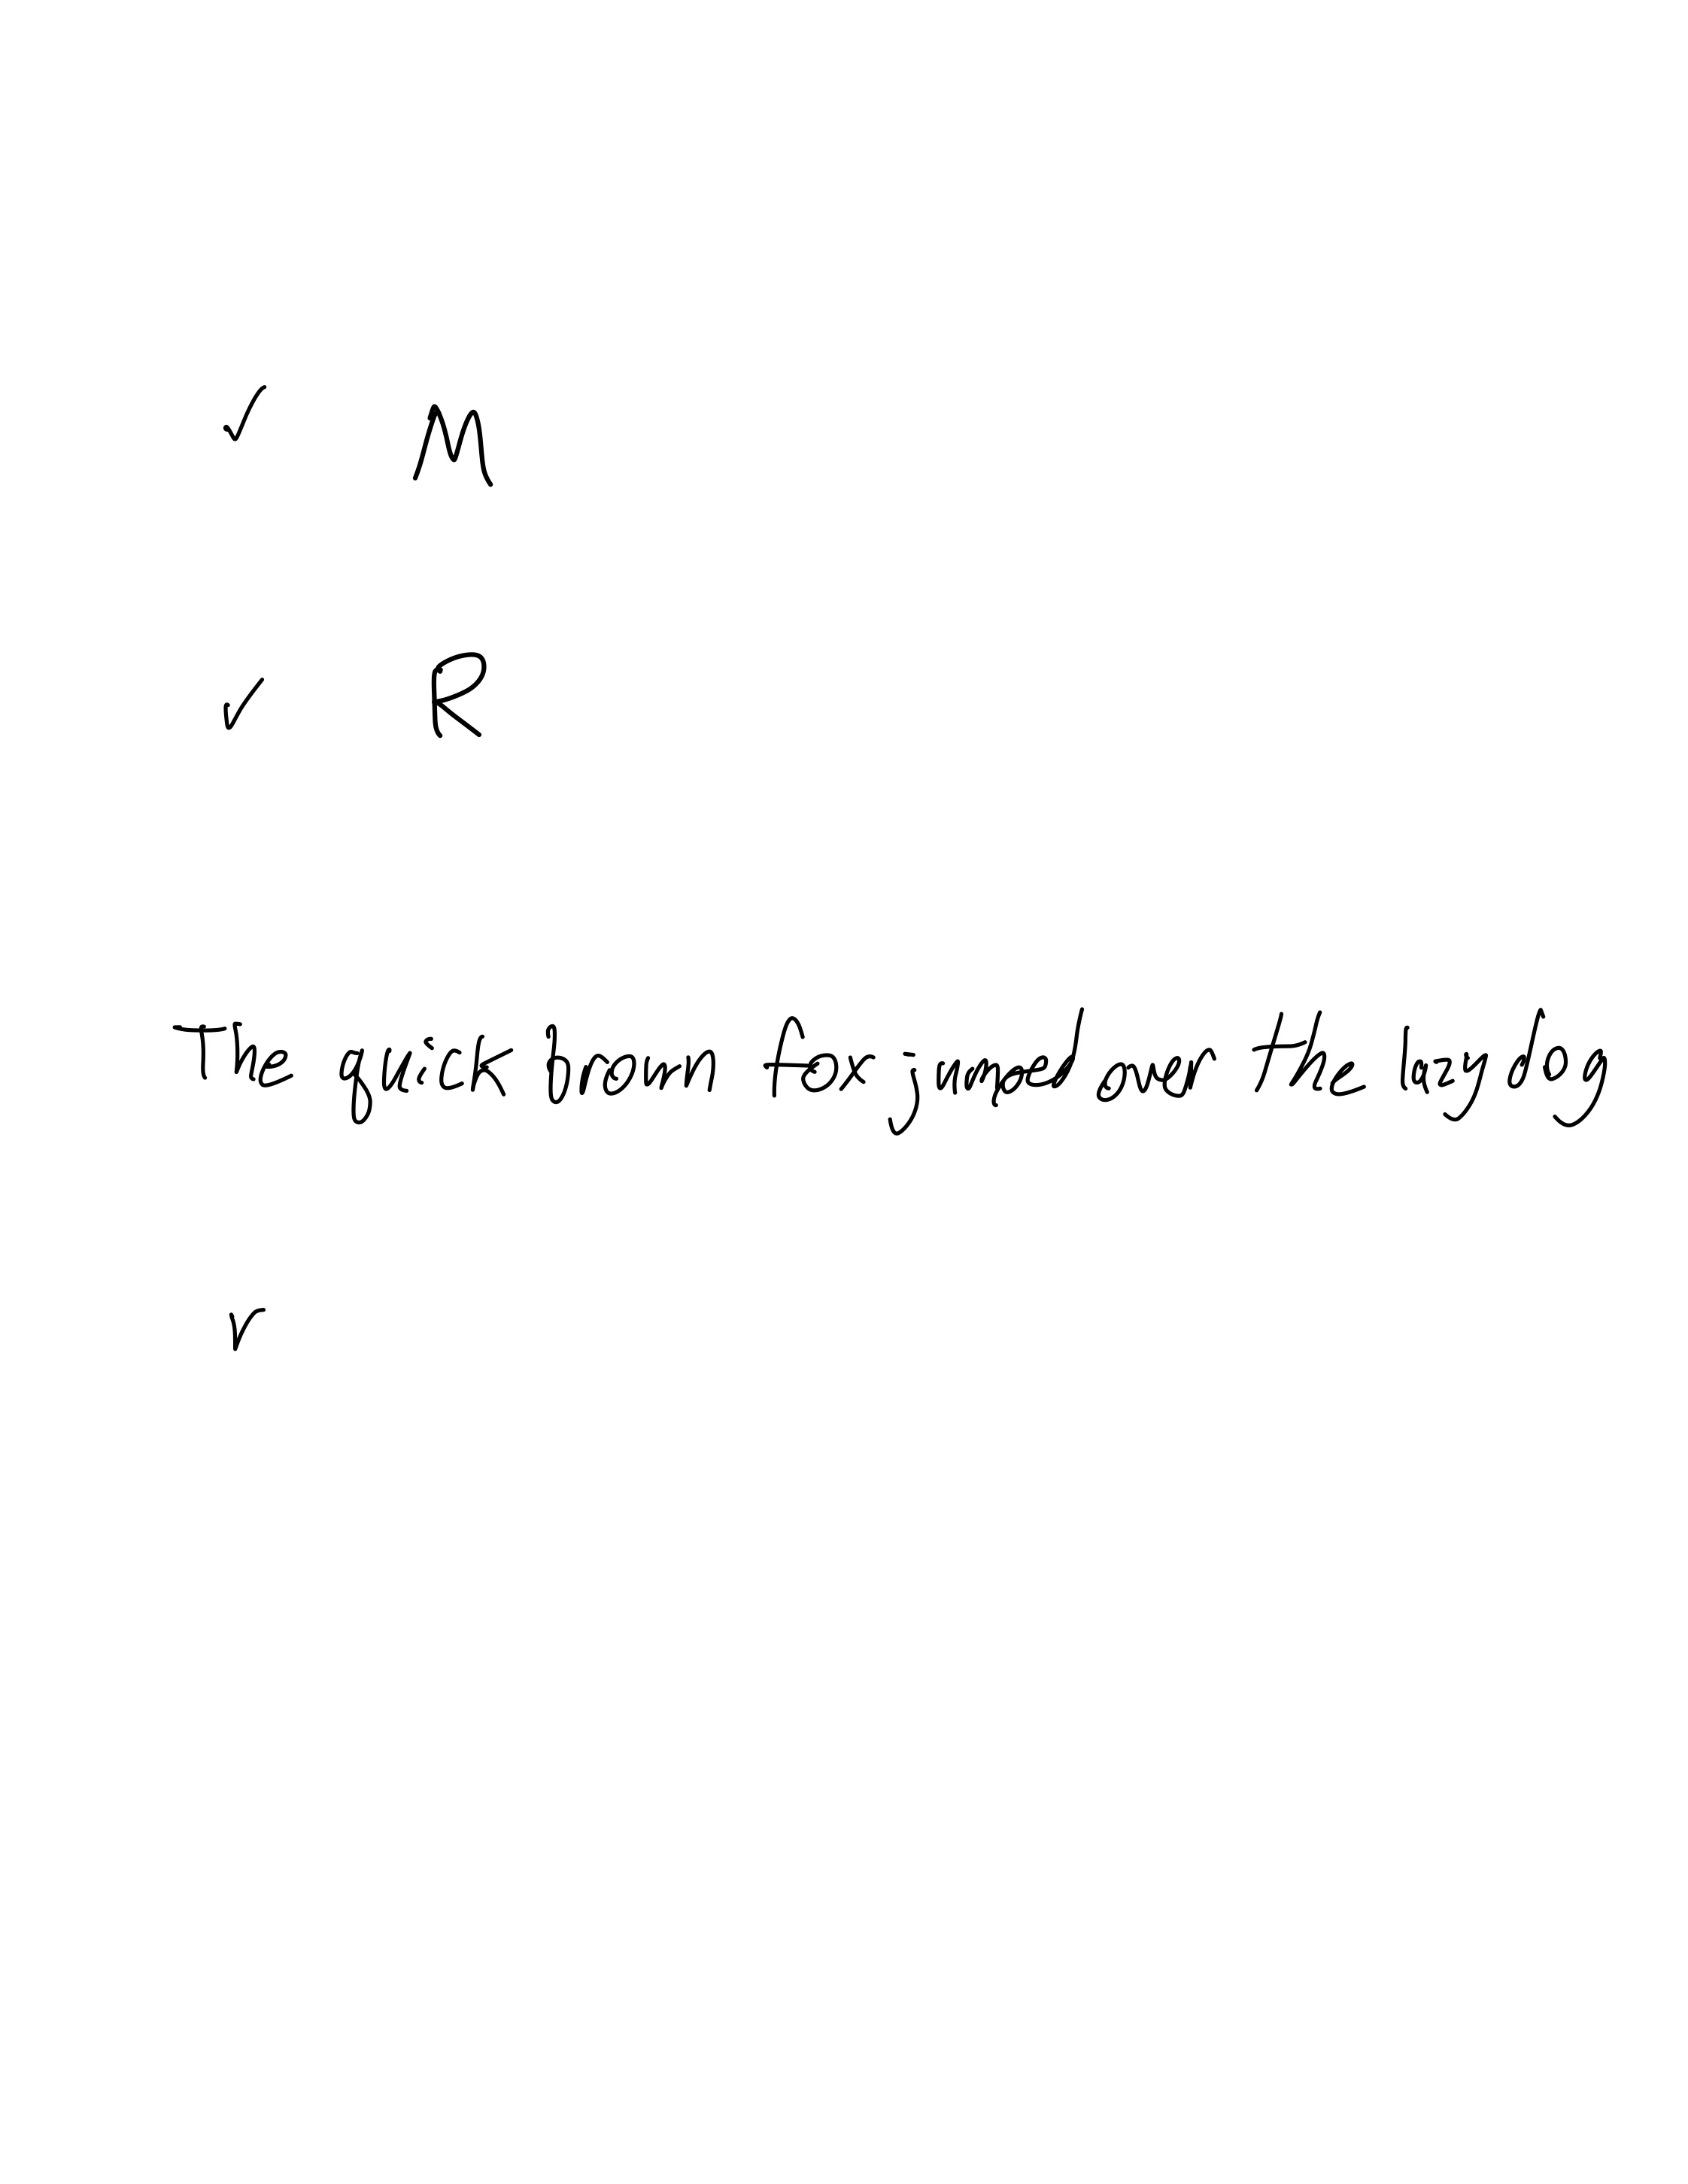 ✓ M
✓ R
The quick brown fox jumped over the lazy dog
r